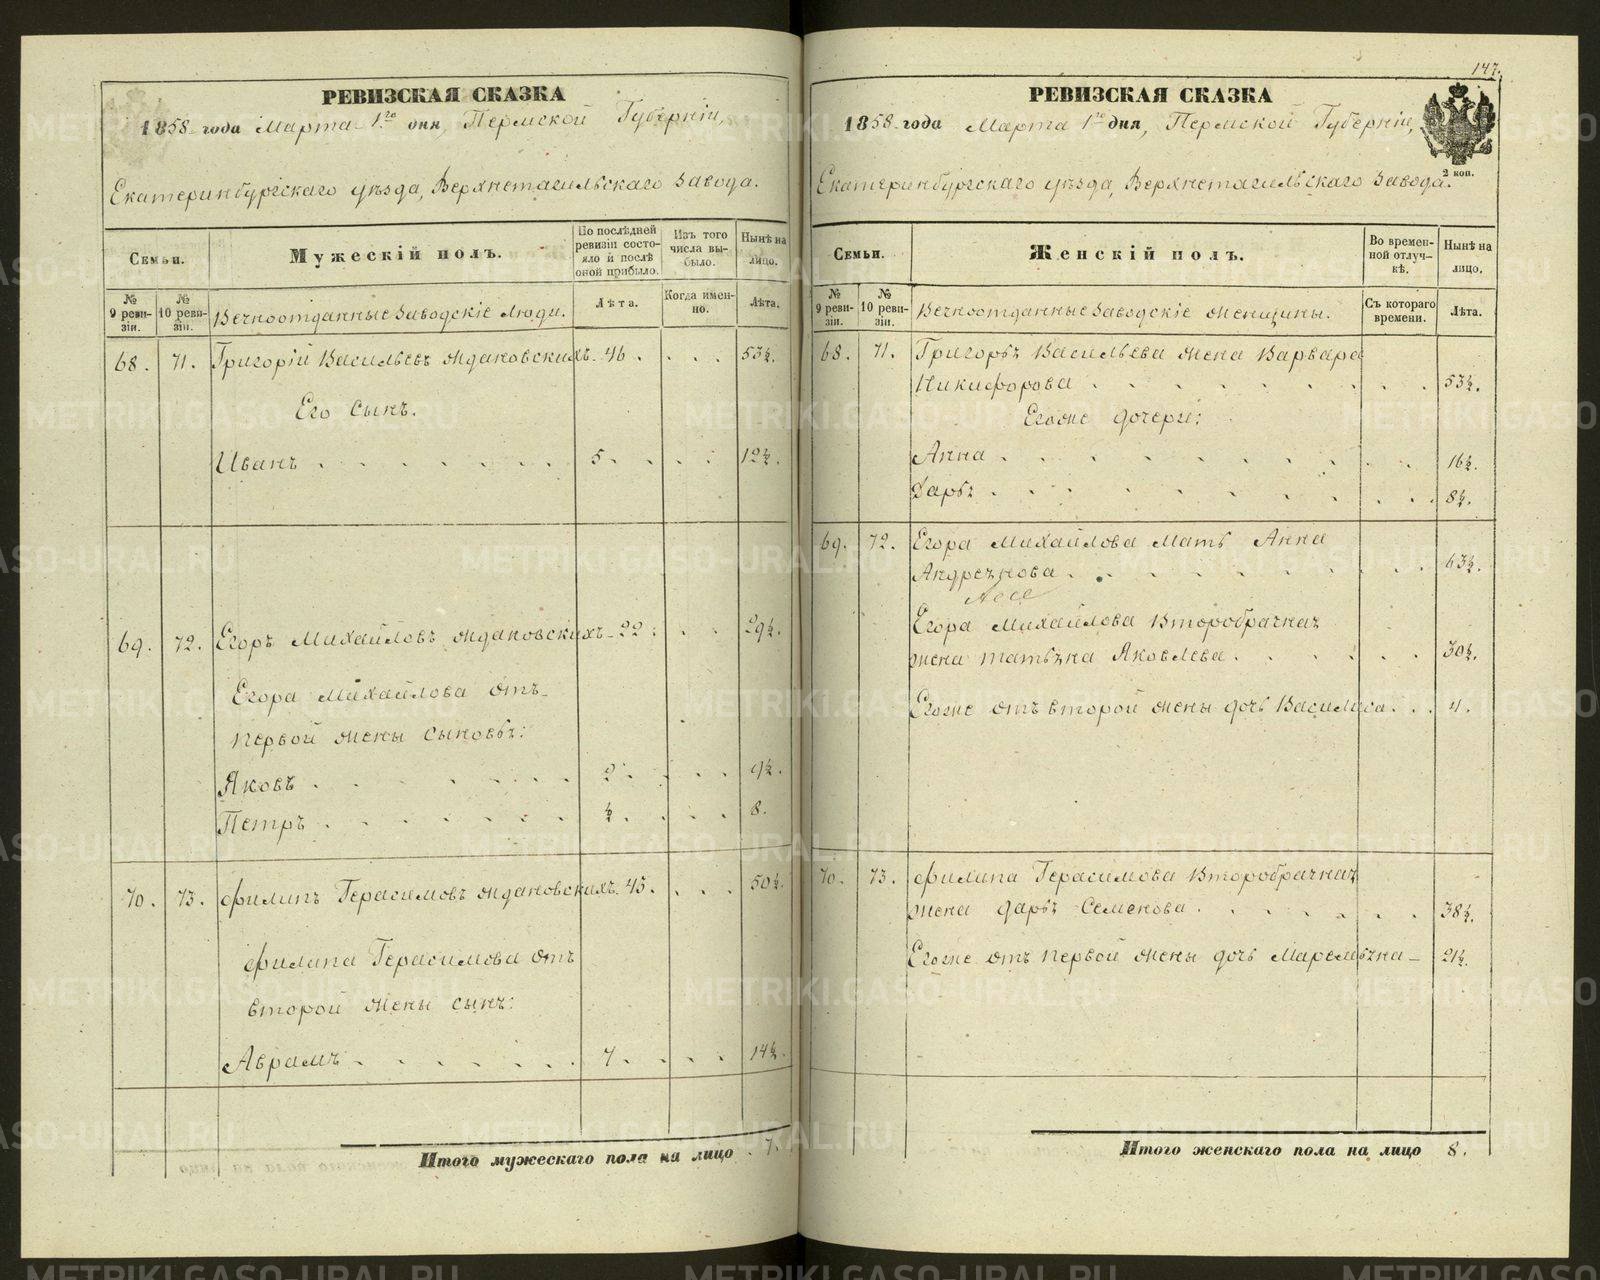 РЕВИЗСКАЯ СКАЗКА
1858 года Марта 1го дня, Пермской Губерніи,
Екатеринбургскаго уѣзда, Верхнетагильскаго Завода.
Семьи.
Мужескій полъ.
По послѣдней ревизіи состояло и послѣ оной прибыло.
Изъ того числа выбыло.
Нынѣ на лицо.
№ 9 ревизіи.
№ 10 ревизіи.
Вечноотданные Заводскіе Люди.
Лѣта.
Когда именно.
Лѣта.
68. 71. Григорій Васильевъ Ждановскихъ 46. 53½.
Его Сынъ.
Иванъ 5. 12½.
69. 72. Егоръ Михайловъ Ждановскихъ 22. 29½.
Егора Михайлова отъ
первой жены сыновья:
Яковъ 2. 9½.
Петръ ½. 8.
70. 73. Филипъ Герасимовъ Ждановскихъ 43. 50½.
Филипа Герасимова отъ
второй жены сынъ:
Аврамъ 7. 14½.
Итого мужескаго пола на лицо 7.
147.
РЕВИЗСКАЯ СКАЗКА
1858 года Марта 1го дня, Пермской Губерніи,
2 коп.
Екатеринбургскаго уѣзда, Верхнетагильскаго Завода.
Семьи.
Женскій полъ.
Во временной отлучкѣ.
Нынѣ на лицо.
№ 9 ревизіи.
№ 10 ревизіи.
Вечноотданные Заводскіе женщины.
Съ котораго времени.
Лѣта.
68. 71. Григорья Васильева жена Варвара
Никифорова 53½.
Егоже дочери:
Анна 16½.
Дарья 8½.
69. 72. Егора Михайлова Мать Анна
Андреянова 63½.
Егора Михайлова Второбрачная
жена Татьяна Яковлева 30½.
Егоже отъ второй жены дочь Василиса 4.
70. 73. Филипа Герасимова Второбрачная
жена Дарья Семенова 38½.
Егоже отъ первой жены дочь Маремьяна 21½.
Итого женскаго пола на лицо 8.
METRIKI.GASO-URAL.RU